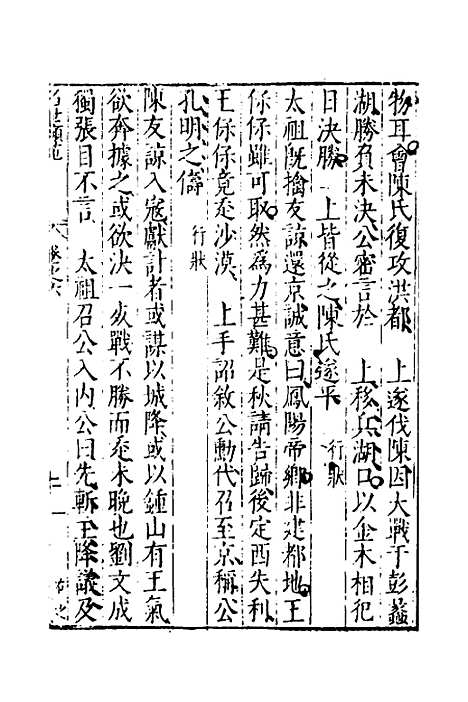 物耳會陳氏復攻洪都　上遂伐陳因大戰于彭蠡
湖勝負未決公密言於　上移兵湖口以金木相犯
日決勝　上皆從之陳氏遂平　行狀
太祖既擒友諒還京誠意曰鳳陽帝鄉非建都地王
保保雖可取然為力甚難是秋請告歸後定西失利
王保保竟走沙漠　上手詔敘公勳代召至京稱公
孔明之儔　行狀
陳友諒入寇獻計者或謀以城降或以鍾山有王氣
欲奔據之或欲決一死戰不勝而走未晚也劉文成
獨張目不言　太祖召公入內公曰先斬主降議及
名世類苑